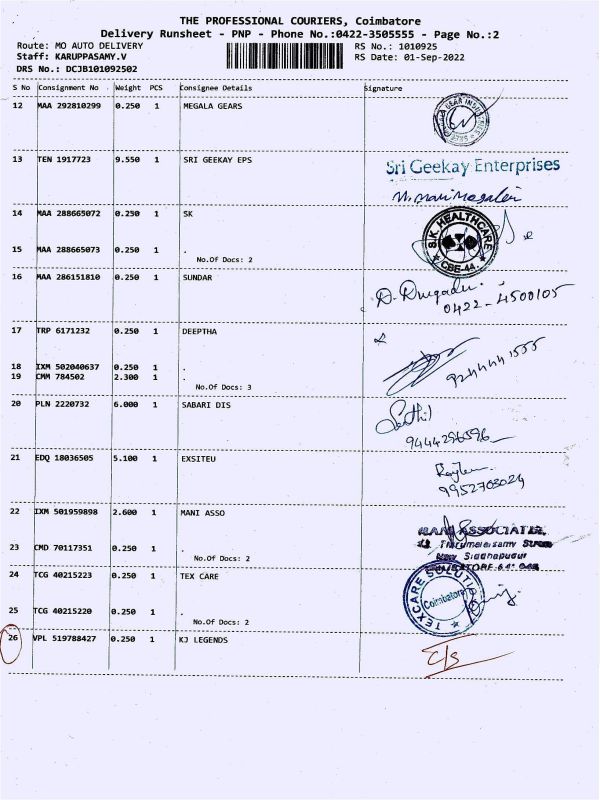 THE PROFESSIONAL COURIERS, Coimbatore
Delivery Runsheet - PNP - Phone No.:0422-3505555 - Page No.:2
Route: MO AUTO DELIVERY RS No.: 1010925
Staff: KARUPPASAMY.V RS Date: 01-Sep-2022
DRS No.: DCJB101092502
S No Consignment No Weight PCS Consignee Details Signature
12 MAA 292810299 0.250 1 MEGALA GEARS
13 TEN 1917723 9.550 1 SRI GEEKAY EPS
Sri Geekay Enterprises
14 MAA 288665072 0.250 1 SK
S.K. HEALTHCARE
CBE-44.
15 MAA 288665073 0.250 1 .
No.Of Docs: 2
16 MAA 286151810 0.250 1 SUNDAR
0422-4500105
17 TRP 6171232 0.250 1 DEEPTHA
9244441555
18 IXM 502040637 0.250 1 .
19 CMM 784502 2.300 1 .
No.Of Docs: 3
20 PLN 2220732 6.000 1 SABARI DIS
9444296596
21 EDQ 18036505 5.100 1 EXSITEU
9952703024
22 IXM 501959898 2.600 1 MANI ASSO
MANI ASSOCIATES,
New Siddhapudur
23 CMD 70117351 0.250 1 .
No.Of Docs: 2
24 TCG 40215223 0.250 1 TEX CARE
TEXCARE SOLUTION
Coimbatore
25 TCG 40215220 0.250 1 .
No.Of Docs: 2
26 VPL 519788427 0.250 1 KJ LEGENDS
C/s